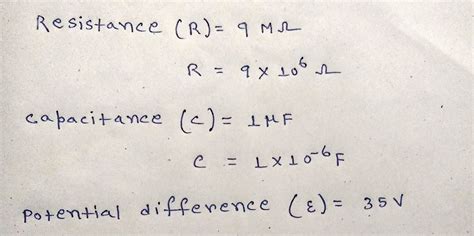 Resistance (R) = 9 MΩ
R = 9 × 10⁶ Ω
capacitance (C) = 1 μF
C = 1 × 10⁻⁶ F
Potential difference (ε) = 35 V